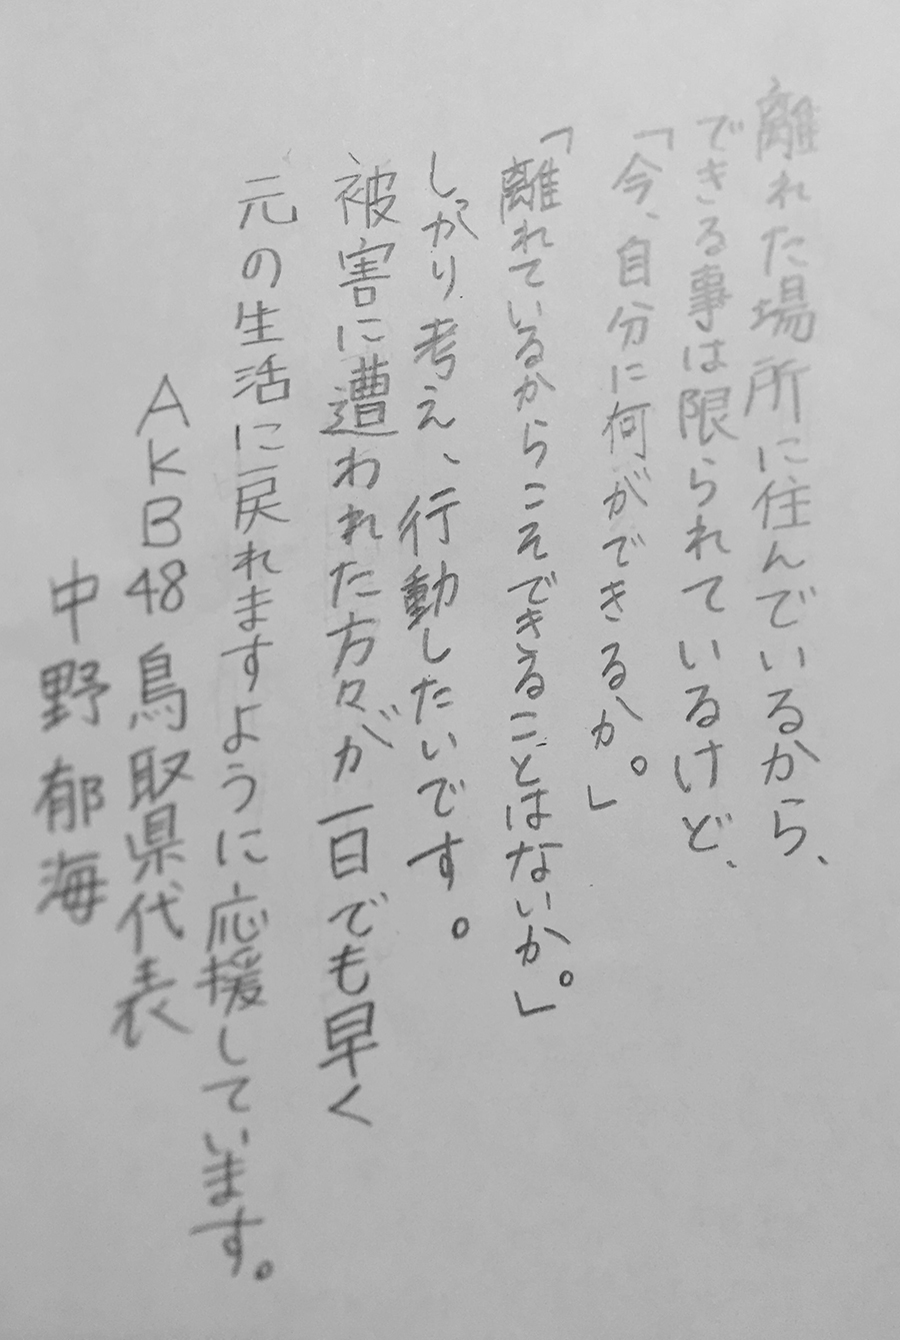 離れた場所に住んでいるから、
できる事は限られているけど、
「今、自分に何ができるか。」
「離れているからこそできることはないか。」
しっかり考え、行動したいです。
被害に遭われた方々が一日でも早く
元の生活に戻れますように応援しています。
AKB48鳥取県代表
中野郁海